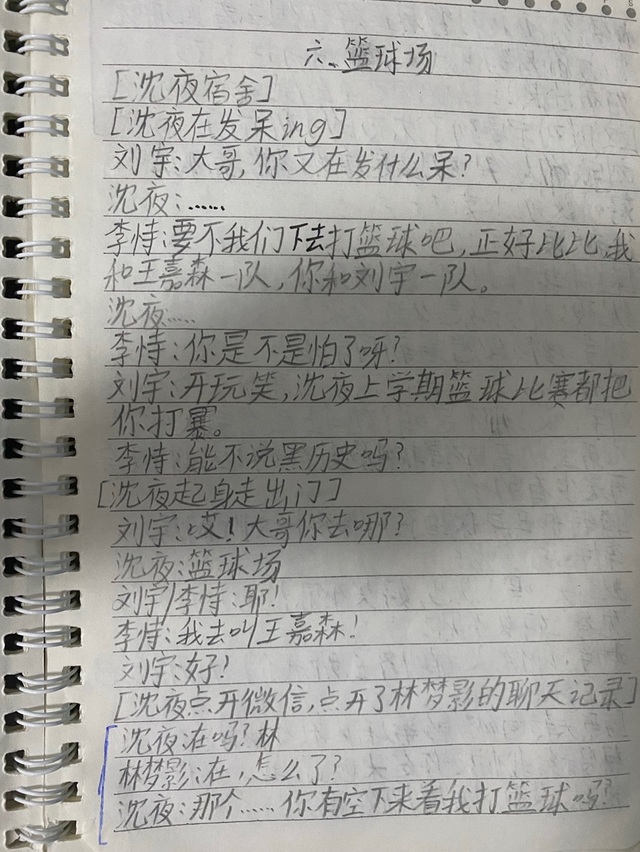 六、篮球场
[沈夜宿舍]
[沈夜在发呆ing]
刘宇:大哥,你又在发什么呆?
沈夜:……
李恃:要不我们下去打篮球吧,正好比比,我
和王嘉森一队,你和刘宇一队。
沈夜……
李恃:你是不是怕了呀?
刘宇:开玩笑,沈夜上学期篮球比赛都把
你打暴。
李恃:能不说黑历史吗?
[沈夜起身走出门]
刘宇:哎!大哥你去哪?
沈夜:篮球场
刘宇/李恃:耶!
李恃:我去叫王嘉森!
刘宇:好!
[沈夜点开微信,点开了林梦影的聊天记录]
沈夜:在吗?林
林梦影:在,怎么了?
沈夜:那个……你有空下来看我打篮球吗?